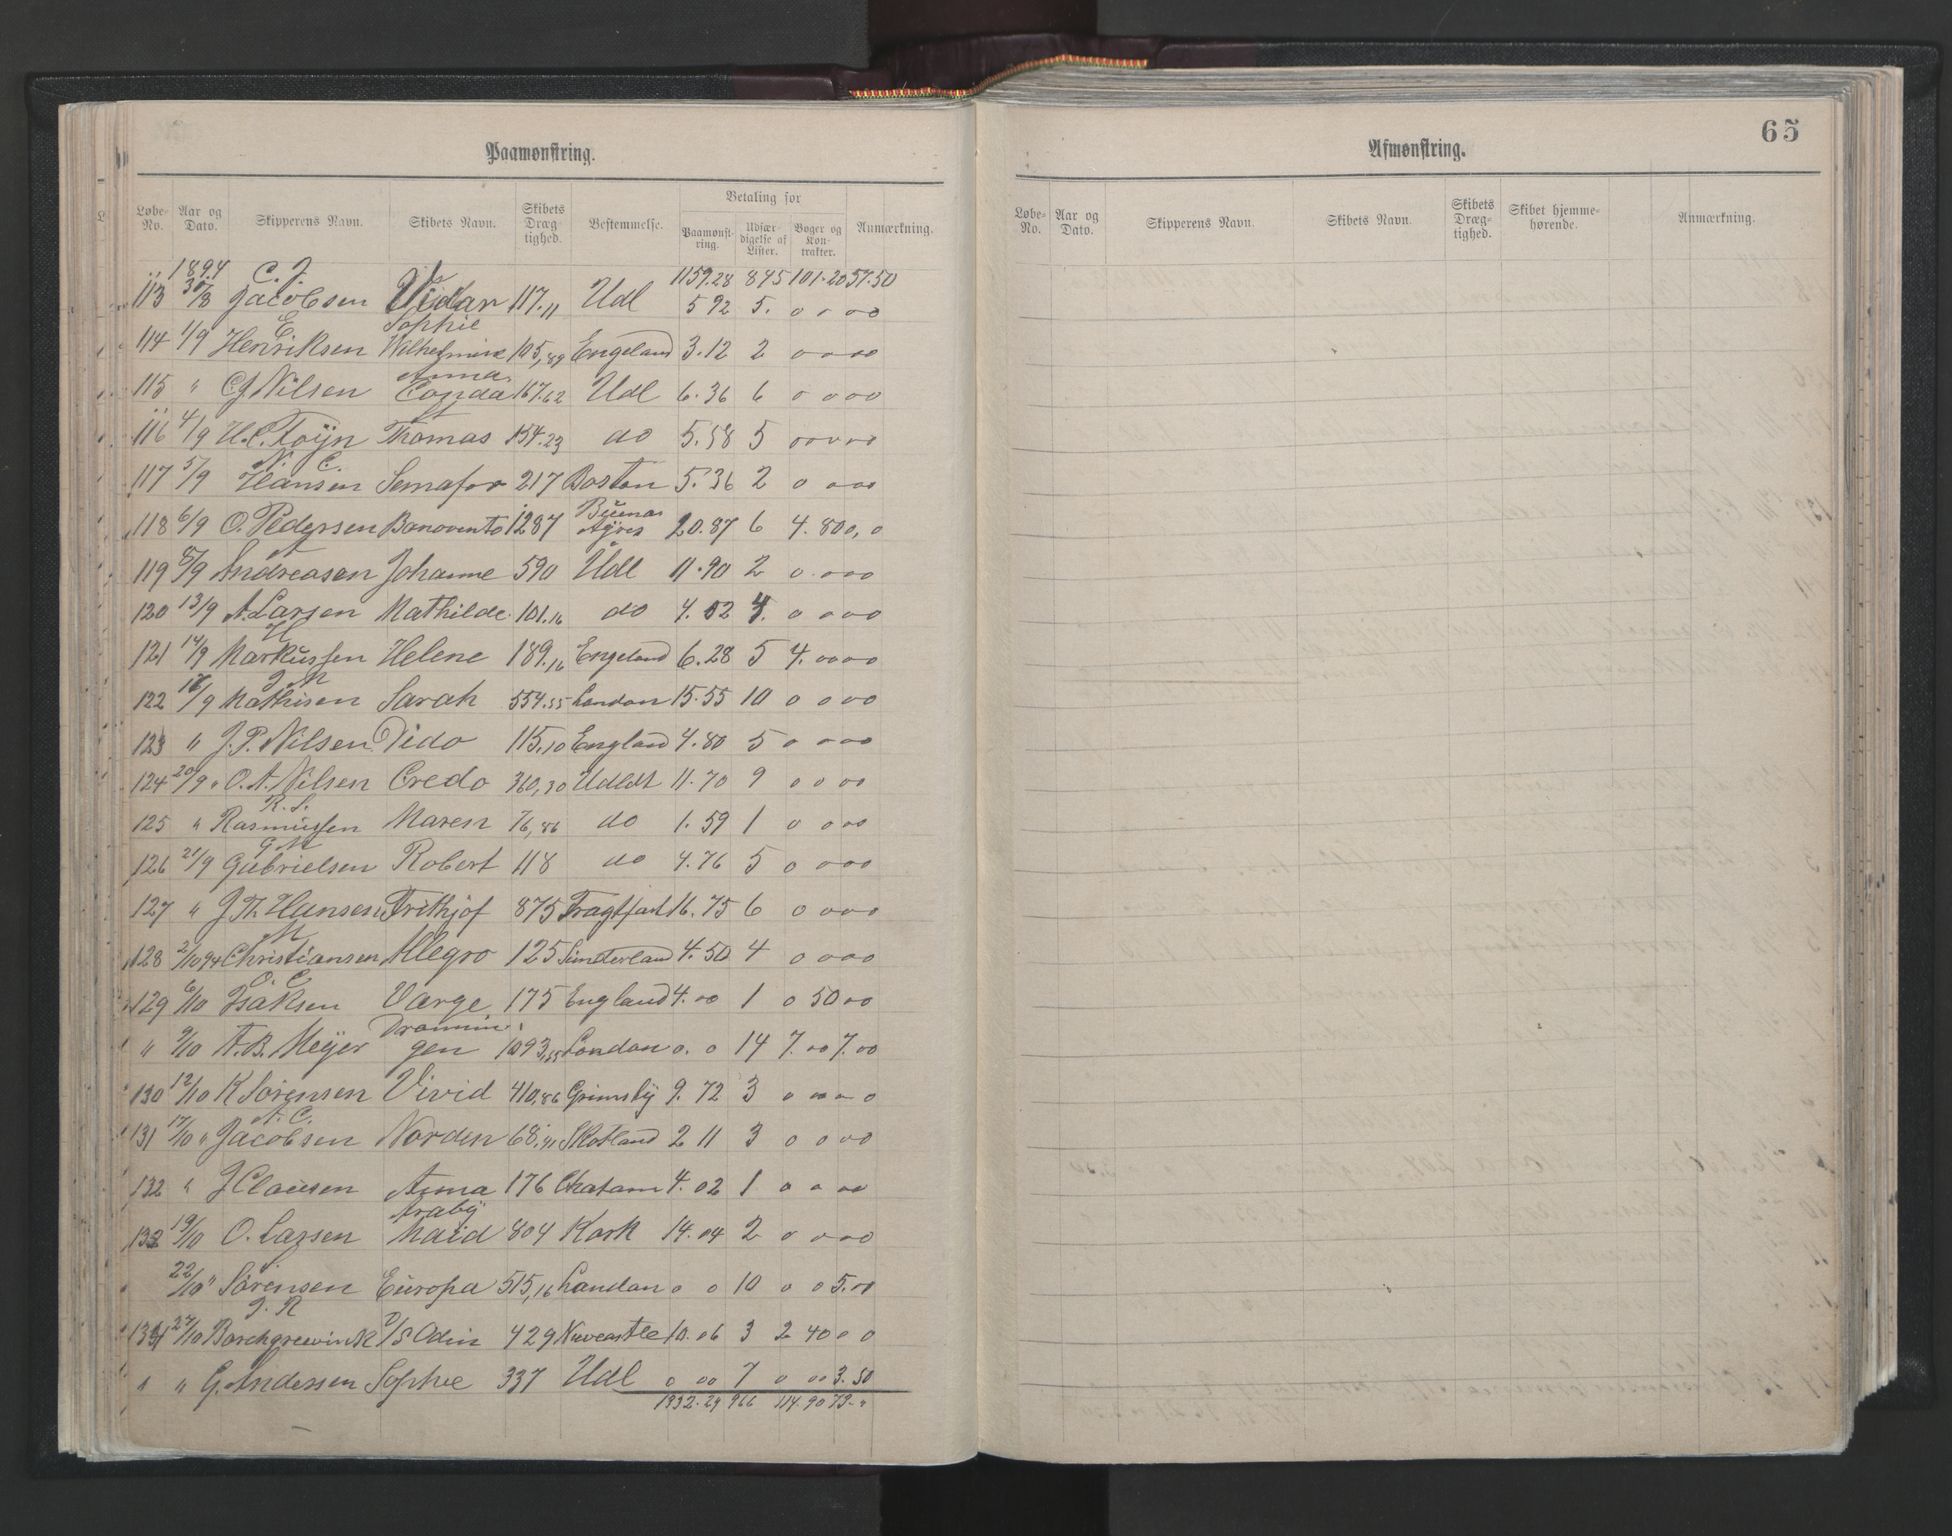 Paamønstring.
Løbe-No. Aar og Dato. Skipperens Navn. Skibets Navn. Skibets Dræg-tighed. Bestemmelse. Betaling for Paamønst-ring. Udfær-digelse af Lister. Bøger og Kon-trakter. Anmærkning.
1894 1159.28 845 101.20 57.50
113 30/8 C. J. Jacobsen Vidar 117.11 Udl 5 92 5. 0 0 00
114 1/9 E Henriksen Sophie Wilhelmine 105,89 Engeland 3.12 2 0 0 00
115 " C J Nilsen Anna Conda 167.62 Udl 6.36 6 0 0 00
116 4/9 H. C. Foÿn St Thomas 154.23 do 5.58 5 00 00 00
117 5/9 N. C. Hansen Semafor 217 Boston 5.36 2 0 0 00
118 6/9 O. Pedersen Bonovento 1287 Buenos Ayres 20.87 6 4.80 0, 0
119 8/9 A Andreasen Johanne 590 Udl 11.90 2 0 0 00
120 13/9 A. Larsen Mathilde 101.16 do 4.02 4. 0 0 00
121 14/9 H Markussen Helene 189.16 Engeland 6.28 5 4. 00 00
122 18/9 J M Mathisen Sarah 554.55 London 15.55 10 0 0 00
123 " J. P. Nilsen Dido 115,10 England 4.80 5 0 0 00
124 20/9 " O. A. Nilsen Credo 360,30 Udldt 11.70 9 0 0 00
125 " R. S. Rasmussen Maren 76,86 do 1.59 1 0 0 00
126 21/9 G M Gabrielsen Robert 118 do 4.76 5 0 0 00
127 " J Th. Hansen Frithjof 875 Fragtfart 16.75 6 0 0 00
128 2/10 94 M Christiansen Allegro 125 Sunderland 4.50 4 0 0 00
129 6/10 O. C. Isaksen Varge 175 England 4.00 1 0 50 00
" 9/10 A. B. Meÿer Dronnin gen 1093,65 London 0. 0 14 7.00 7.00
130 12/10 K Sørensen Vivid 410,86 Grimsbÿ 9.72 3 0 00 0
131 17/10 " A. C. Jacobsen Norden 68.91 Skotland 2 11 3 0 0 00
132 " J Clausen Anna 176 Chatam 4.02 1 0 0 00
133 19/10 O. Larsen Arabÿ Maid 804 Kork 14.04 2 0 0 00
22/10 " Sørensen Europa 515,16 London 0 0 10 0 0 5.00
134 27/10 J. R Borchgrevink D/S Odin 429 Newcastle 10.06 3 2 40 0 0
" " G. Andersen Sophie 337 Udl 0 00 7 0 00 3.50
1932.29 966 114.90 73. "
65
Afmønstring.
Løbe-No. Aar og Dato. Skipperens Navn. Skibets Navn. Skibets Dræg-tighed. Skibet hjemme-hørende. Anmærkning.